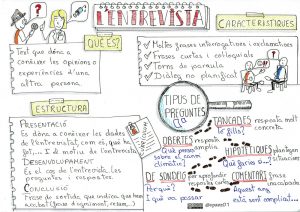 L'ENTREVISTA
QUÈ ÉS?
Text que dóna a
conèixer les opinions o
experiències d'una
altra persona.
CARACTERÍSTIQUES
Moltes frases interrogatives i exclamatives
Frases curtes i col·loquials
Torns de paraula
Diàleg no planificat
ESTRUCTURA
PRESENTACIÓ
És dóna a conèixer les dades
de l'entrevistat, com és, què ha
fet,... i el motiu de l'entrevista.
DESENVOLUPAMENT
És el cos de l'entrevista, les
preguntes i respostes
CONCLUSIÓ
Frase de sortida que indica que hem
acabat (frase d'agraïment, resum...)
TIPUS DE
PREGUNTES
TANCADES resposta molt
concreta.
Té fills?
OBERTES resposta
àmplia.
Què pensa
sobre el canvi
climàtic?
HIPOTÈTIQUES plantegen
una situació.
Què faries si...?
DE SONDEIG per aprofundir
resposta
Perquè?
I què va passar?
COMENTARIS frase
inacabada.
Aquest any
està sent complicat...